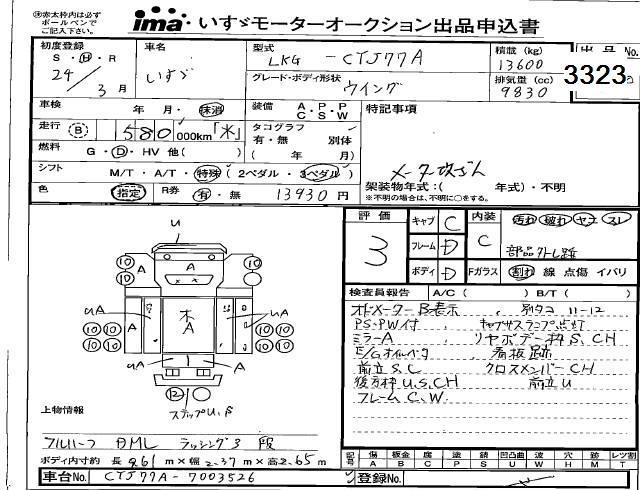 ㊟赤太枠内は必ず
ボールペンで
ご記入下さい。
ima いすゞモーターオークション出品申込書
初度登録
S・H・R
24年 3月
車名
いすゞ
型式
LKG - CYJ77A
グレード・ボディ形状
ウイング
積載 (kg)
13600
排気量 (cc)
9830
No.
3323
車検 年 月・抹消
走行 B 580 000km「水」
燃料 G・D・HV 他( )
シフト M/T・A/T・特殊 (2ペダル・3ペダル)
色 指定 R券 有・無 13930円
装備 A/C・P/S・P/W
タコグラフ
有・無 別体
( 年 月)
特記事項
メーター改ざん
架装物年式:( 年式)・不明
※不明の場合は、不明に○をする。
評価
3
キャブ C
フレーム D
ボディ D
内装
C
Fガラス
汚れ 破れ ヤケ スレ
部品外し跡
割れ 線 点傷 イバリ
検査員報告 A/C( ) B/T( )
オドメーターB表示、別タコ 11-12
PS・PW付 キャブサスランプ点灯
ミラーA リヤボデー枠S、CH
E/Gオイル 看板跡
前立S、C クロスメンバーCH
後方枠U、S、CH 前立U
フレームC、W
U
⑩ A A ⑩
⑩ ⑩
UA 木 UA
A A
⑩⑩ ⑩⑩
⑩⑩ ⑩⑩
UA A
⑫
ステップU、S
上物情報
フルハーフ BML ラッシング3段
ボディ内寸約 長 9.61m×幅2.37m×高2.65m
車台No. CYJ77A-7003526
登録No.
記号 傷 板金 腐 塗 錆 凹凸曲 波 穴 歪 メクレ 跡
A B C P S U W H M L T